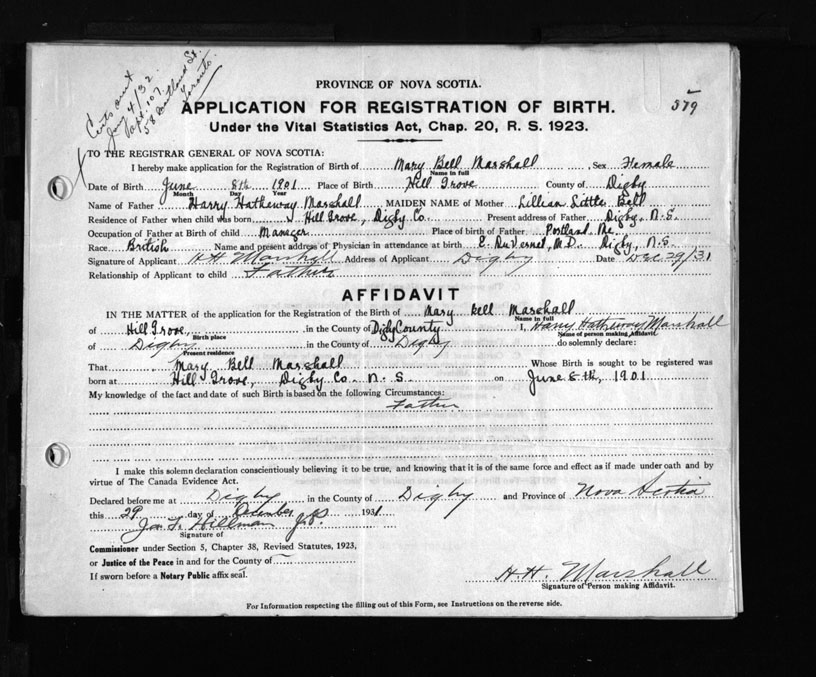 Certs sent
Jany 4/32
Apt. 107
58 Maitland St.
Toronto
579
PROVINCE OF NOVA SCOTIA.
APPLICATION FOR REGISTRATION OF BIRTH.
Under the Vital Statistics Act, Chap. 20, R. S. 1923.
TO THE REGISTRAR GENERAL OF NOVA SCOTIA:
I hereby make application for the Registration of Birth of Mary Bell Marshall Sex Female
Name in full
Date of Birth June 8th 1901 Place of Birth Hill Grove County of Digby
Month Day Year
Name of Father Harry Hatheway Marshall MAIDEN NAME of Mother Lillian Bell
Residence of Father when child was born Hill Grove, Digby Co. Present address of Father Digby, N.S.
Occupation of Father at Birth of child Manager Place of birth of Father Portland Me.
Race British Name and present address of Physician in attendance at birth E. DuVernet, M.D. Digby, N.S.
Signature of Applicant H H Marshall Address of Applicant Digby Date Dec 29/31
Relationship of Applicant to child Father
AFFIDAVIT
IN THE MATTER of the application for the Registration of the Birth of Mary Bell Marshall
Name in full
of Hill Grove, in the County of Digby County I, Harry Hatheway Marshall
Birth place Name of person making Affidavit.
of Digby in the County of Digby do solemnly declare:
Present residence
That Mary Bell Marshall Whose Birth is sought to be registered was
born at Hill Grove, Digby Co. N. S. on June 8th, 1901
My knowledge of the fact and date of such Birth is based on the following Circumstances:
Father
I make this solemn declaration conscientiously believing it to be true, and knowing that it is of the same force and effect as if made under oath and by
virtue of The Canada Evidence Act.
Declared before me at Digby in the County of Digby and Province of Nova Scotia
this 29 day of December 1931
Hillman J.P.
Signature of
Commissioner under Section 5, Chapter 38, Revised Statutes, 1923,
or Justice of the Peace in and for the County of
If sworn before a Notary Public affix seal.
H H Marshall
Signature of Person making Affidavit.
For Information respecting the filling out of this Form, see Instructions on the reverse side.